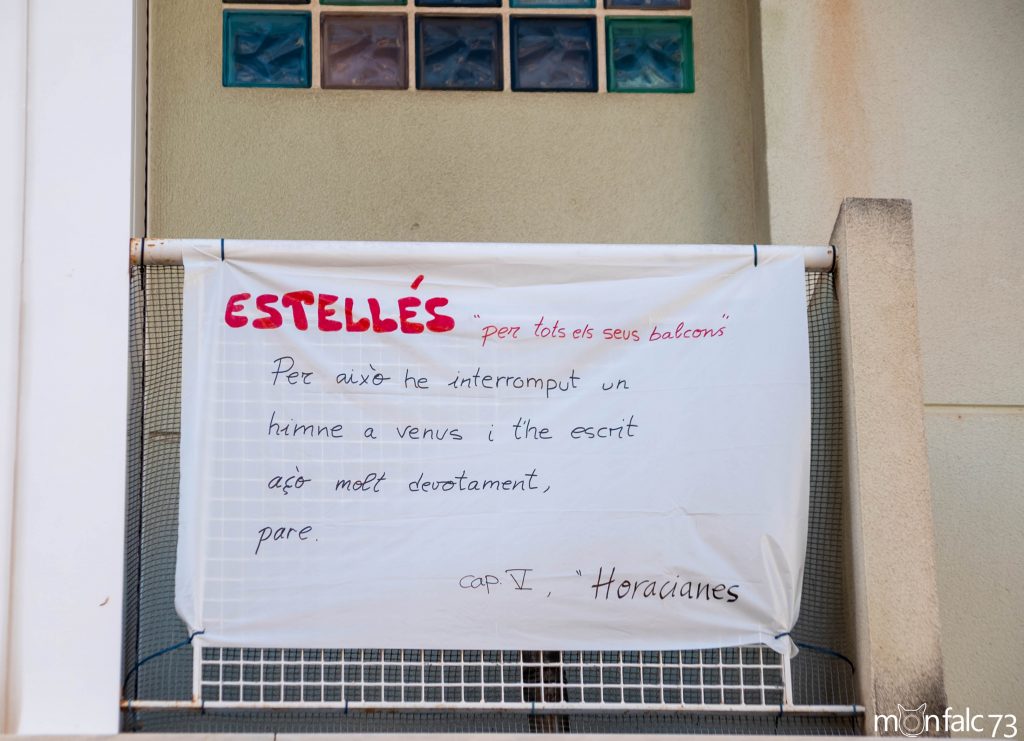 ESTELLÉS "per tots els seus balcons"
Per això he interromput un
himne a venus i t'he escrit
açò molt devotament,
pare.
cap. V, "Horacianes
monfalc 73